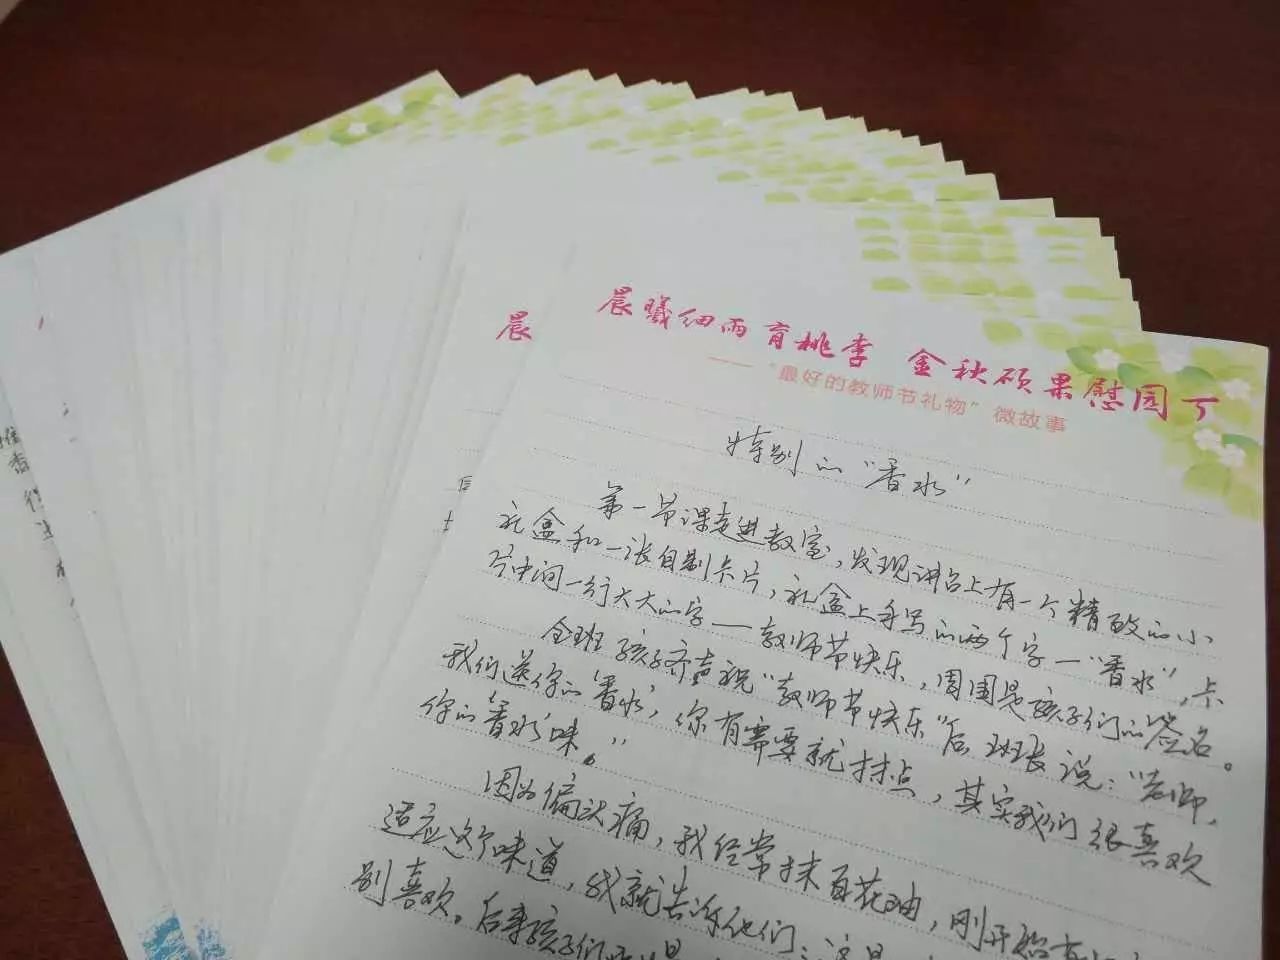 晨曦细雨育桃李 金秋硕果慰园丁
——“最好的教师节礼物”微故事
晨
特别的“香水”
第一节课走进教室,发现讲台上有一个精致的小
礼盒和一张自制卡片,礼盒上手写的两个字—“香水”,卡
片中间一行大大的字—教师节快乐,周围是孩子们的签名。
全班孩子齐声祝“教师节快乐”后,班长说:“老师,
我们送你的‘香水’,你有需要就抹点,其实我们很喜欢
你的‘香水’味。”
因为偏头痛,我经常抹百花油,刚开始
适应这个味道,我就告诉他们:这是
别喜欢。后来孩子们